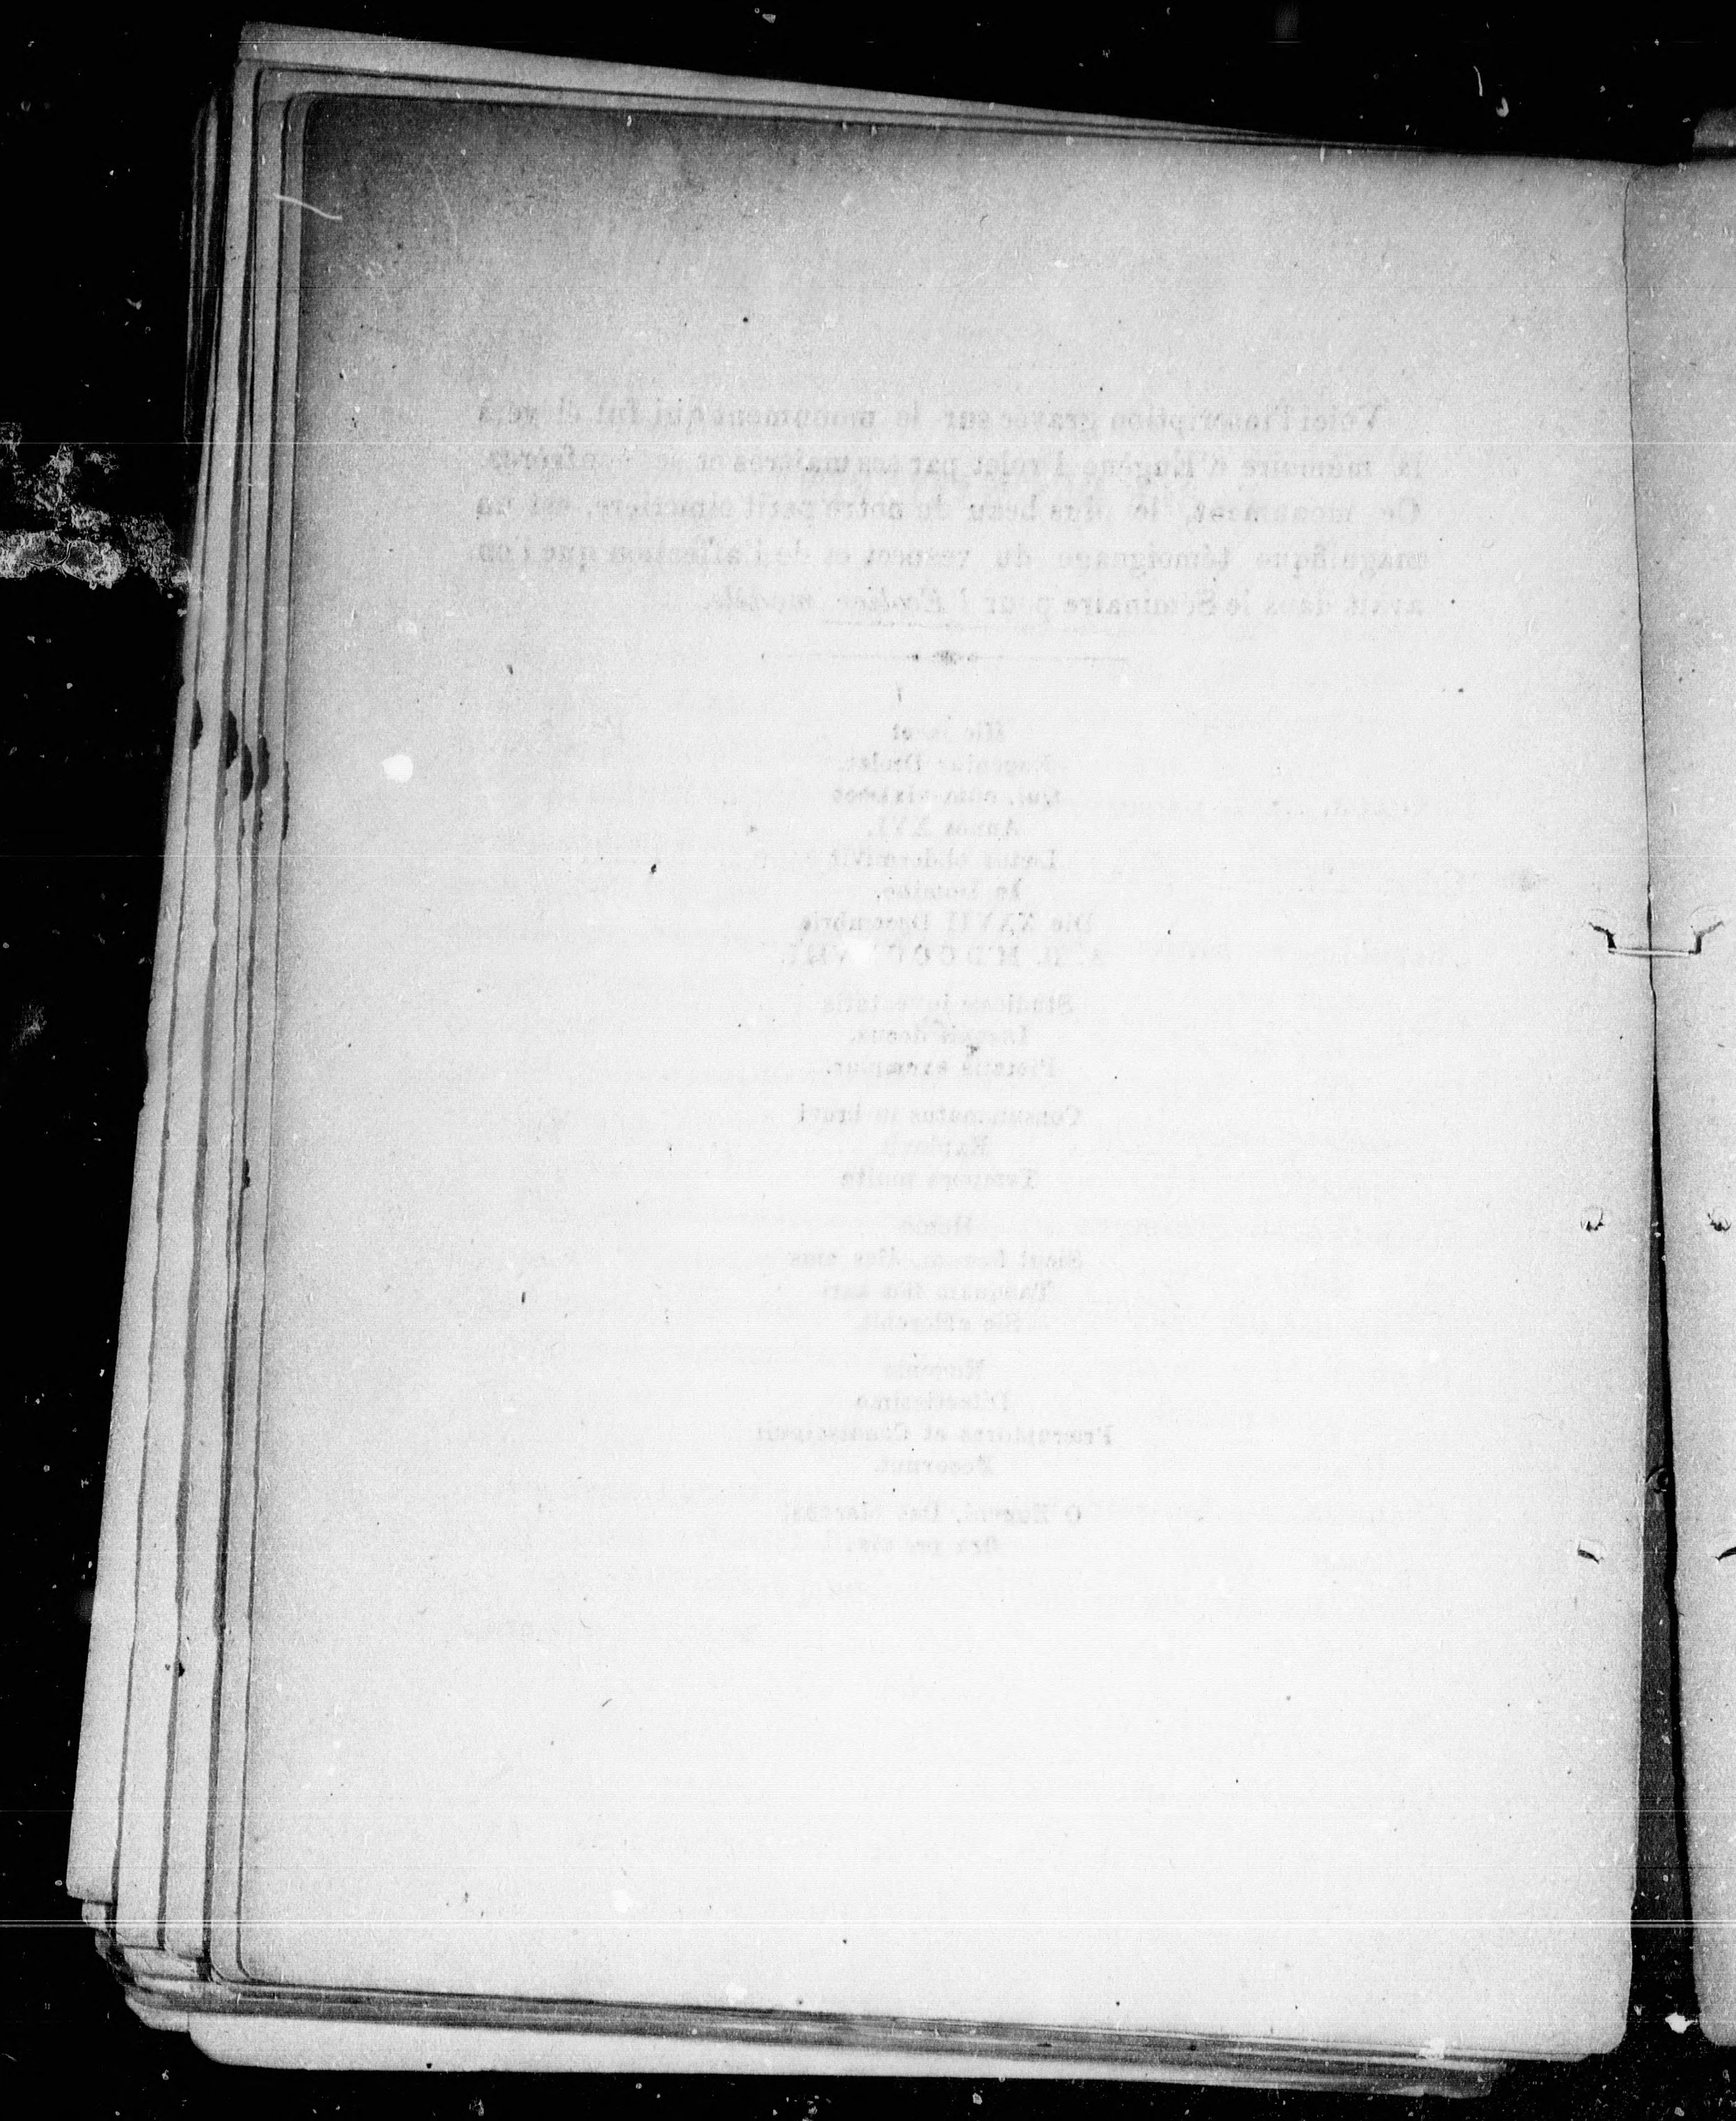 Voici l'inscription gravée sur le monument qui fut élevé à
la mémoire d'Eugène Drolet par ses maîtres et ses confrères.
Ce monument, le plus beau de notre petit cimetière, est un
magnifique témoignage du respect et de l'affection que l'on
avait dans le Séminaire pour l'Écolier modèle.
Hic jacet
Eugenius Drolet.
Qui, cum vixisset
Annos XVI,
Lætus obdormivit
In Domino,
Die XXVII Decembris
A. D.
Studiosæ juventutis
decus,
Pietatis exemplar.
Consummatus in brevi
Explevit
Tempora multa
Homo
Sicut fœnum dies ejus
Tanquam flos agri
Sic efflorebit.
Eugenio
Dilectissimo
Præceptores et Condiscipuli
O Eugeni, Deo
Ora pro